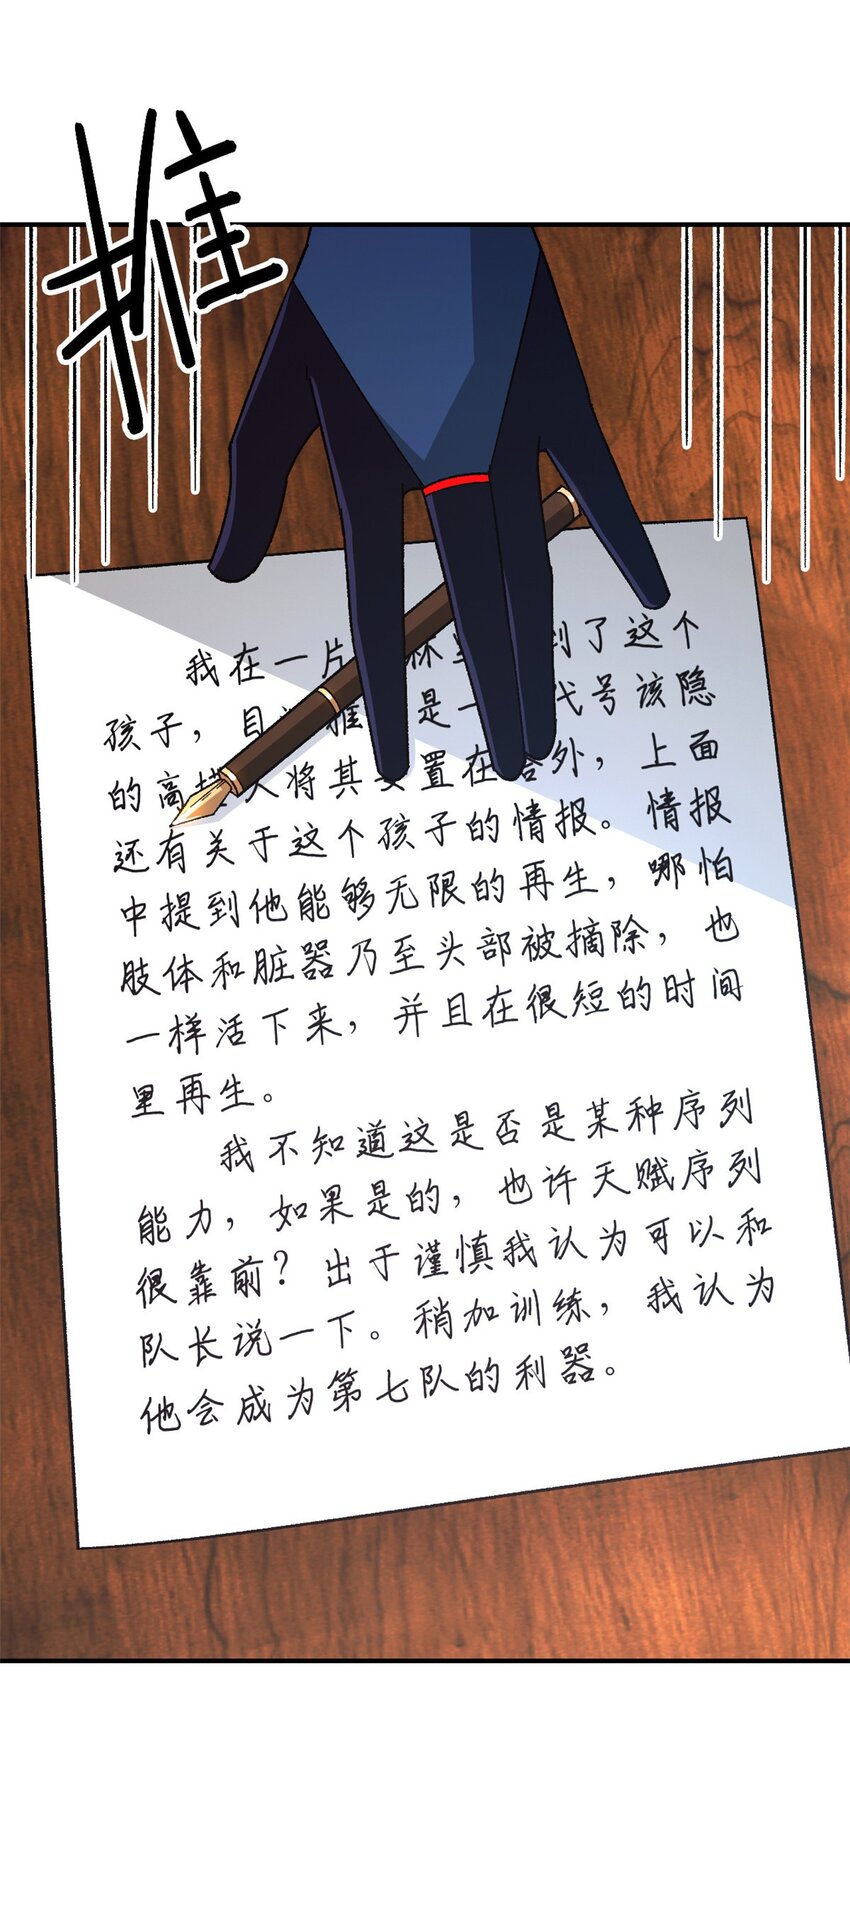 推
我在一片林到了这个
孩子，目推是一代号该隐
的高将其安置在外，上面
还有关于这个孩子的情报。情报
中提到他能够无限的再生，哪怕
肢体和脏器乃至头部被摘除，也
一样活下来，并且在很短的时间
里再生。
我不知道这是否是某种序列
能力，如果是的，也许天赋序列
很靠前？出于谨慎我认为可以和
队长说一下。稍加训练，我认为
他会成为第七队的利器。